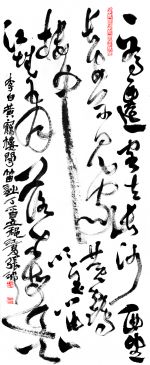 一為遷客去長沙西望
長安不見家黃鶴
樓中吹玉笛
江城五月落梅花
李白黃鶴樓聞笛詩丁亥